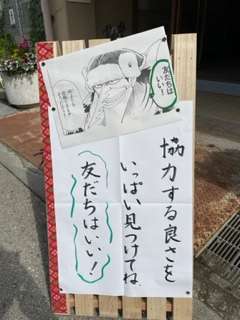 友だちは
いい！
協力する良さを
いっぱい見つけてね。
友だちはいい！